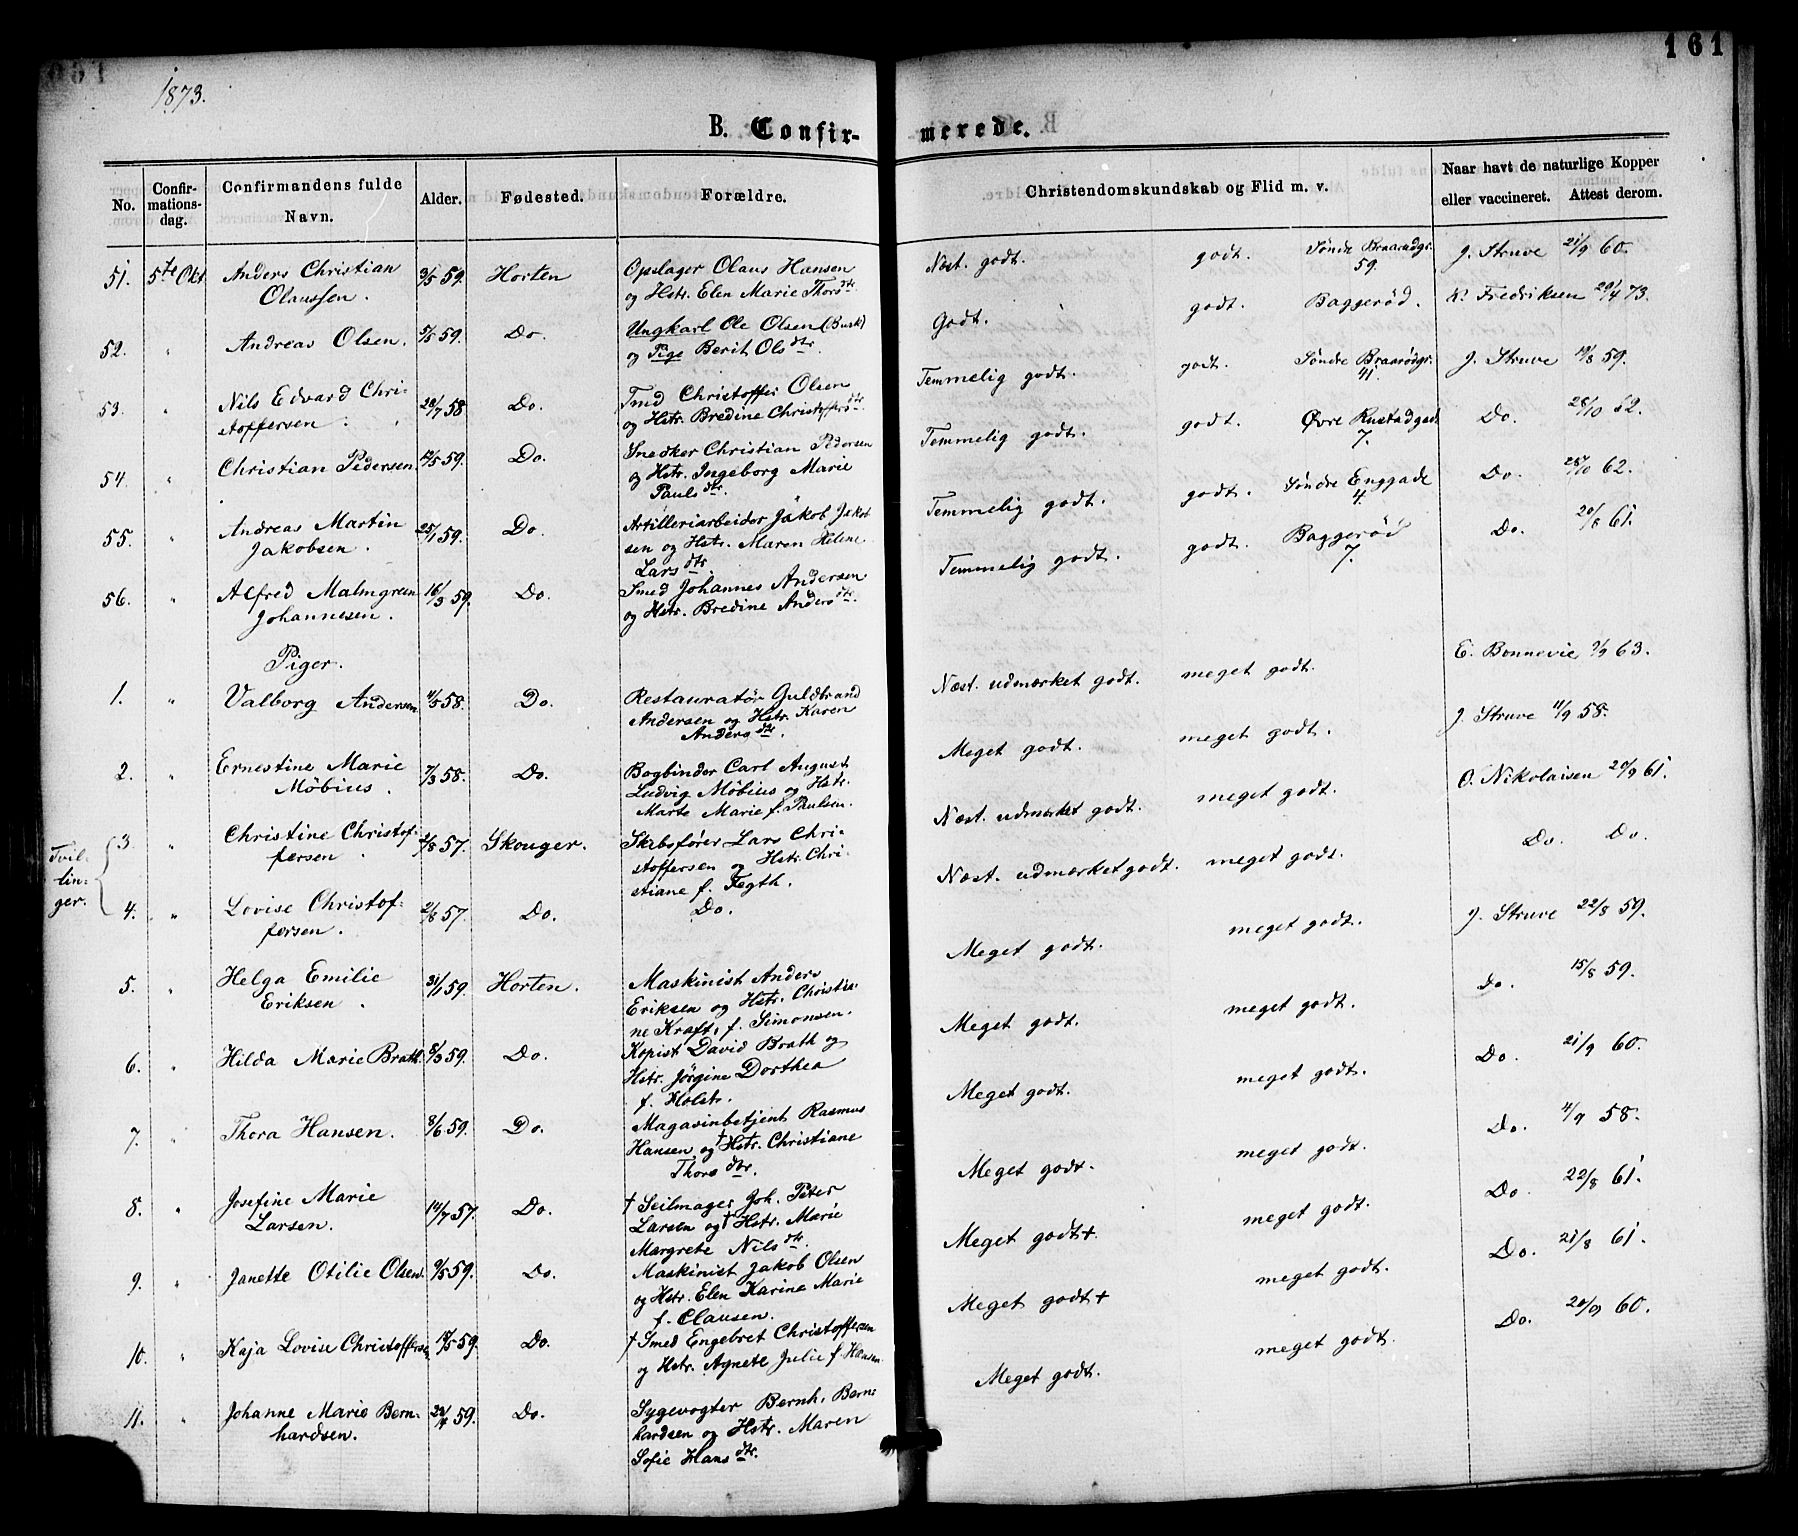 161
1873.
B. Confir- merede.
No. Confir-mations-dag. Confirmandens fulde Navn. Alder. Fødested. Forældre. Christendomskundskab og Flid m. v. Naar havt de naturlige Kopper eller vaccineret. Attest derom.
51. 5te Okt. Anders Christian 3/5 59. Horten Opslager Olaus Hansen Næst. godt. godt. Søndre Braarudgr. J. Struve 21/9 60.
Olaussen. og Hstr. Elen Marie Thorsdtr. 59.
52. " Andreas Olsen. 5/5 59. Do. Ungkarl Ole Olsen (Busk) Godt. godt. Baggerød. K. Fredriksen 29/4 73.
og Pige Berit Olsdtr.
53. " Nils Edvard Chri- 28/7 58 Do. Smd Christoffer Olsen Temmelig godt. godt. Søndre Braarødgr. J. Struve 19/8 59.
stoffersen. og Hstr. Bredine Christoffersdtr. 41.
54. " Christian Pedersen. 12/5 59. Do. Snedker Christian Pedersen Temmelig godt. godt. Øvre Rustadgad. Do. 28/10 62.
og Hstr. Ingeborg Marie 7.
Paulsdtr.
55. " Andreas Martin 25/1 59. Do. Artilleriarbeider Jakob Jakob Temmelig godt. godt. Søndre Enggade Do. 28/10 62.
Jakobsen. sen og Hstr. Maren Helene 4.
Larsdtr.
56. " Alfred Malmgreen 16/3 59. Do. Smed Johannes Andersen Temmelig godt. godt. Baggerød Do. 20/8 61.
Johannesen. og Hstr. Bredine Andersdtr. 7.
Piger.
1. " Valborg Andersen 11/5 58. Do. Restauratør Guldbrand Næst. udmærket godt. meget godt. E. Bonnevie 9/9 63.
Andersen og Hstr. Karen
Andersdtr.
2. " Ernestine Marie 7/3 58. Do. Bogbinder Carl August Meget godt. meget godt. J. Struve 11/9 58.
Möbius. Ludvig Möbius og Hstr.
Marte Marie f. Paulsen.
Tvil-lin-ger. 3. " Christine Christof- 2/8 57. Skouger. Skibsfører Lars Chri- Næst. udmærket godt. meget godt. O. Nikolaisen 20/9 61.
fersen. stoffersen og Hstr. Chri-
stiane f. Fegth.
4. " Lovise Christof- 2/8 57. Do. Do. Næst. udmærket godt. meget godt. Do. Do.
fersen.
5. " Helga Emilie 31/1 59. Horten. Maskinist Anders Meget godt. meget godt. J. Struve 22/8 59.
Eriksen. Eriksen og Hstr. Christia-
ne Kraft, f. Simonsen.
6. " Hilda Marie Brath. 8/3 59. Do. Kopist David Brath og Meget godt. meget godt. Do. 15/8 59.
Hstr. Jörgine Dorthea
f. Holst.
7. " Thora Hansen. 8/6 59. Do. Magasinbetjent Rasmus Meget godt. meget godt. Do. 21/9 60.
Hansen og † Hstr. Christiane
Thorsdtr.
8. " Josefine Marie 14/7 57. Do. † Seilmager Joh. Peter Meget godt. meget godt. Do. 11/9 58.
Larsen. Larsen og † Hstr. Marie
Margrete Nilsdtr.
9. " Janette Otilie Olsen. 9/5 59. Do. Maskinist Jakob Olsen Meget godt+. meget godt. Do. 22/8 61.
og Hstr. Elen Karine Marie
f. Clausen.
10. " Kaja Lovise Christoffersen 18/5 59. Do. † Smed Engebret Christoffersen Meget godt+ meget godt. Do. 21/8 61.
og Hstr. Agnete Julie f. Hansen.
11. " Johanne Marie Bern- 22/4 59. Do. Sygevogter Bernh. Bern- Meget godt. meget godt. Do. 20/9 60.
hardsen. hardsen og Hstr. Maren
Sofie Hansdtr.